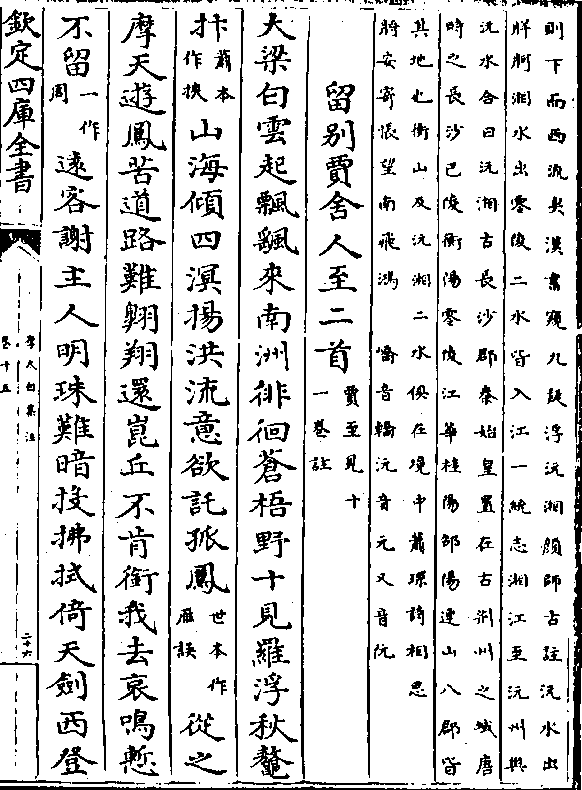 則下而西流矣漢書窺九疑浮沅湘顔師古註沅水出
牂牁湘水出零陵二水皆入江一統志湘江至沅州與
沅水合曰沅湘古長沙郡秦始皇置在古荆州之域唐
時之長沙巴陵衡陽零陵江華桂陽邵陽連山八郡皆
其地也衡山及沅湘二水俱在境中蕭琛詩相思
將安寄悵望南飛鴻 嶠音轎沅音元又音阮
留别賈舍人至二首 賈至見十一卷註
大梁白雲起飄颻來南洲徘徊蒼梧野十見羅浮秋鼇
抃蕭本作挾山海傾四溟揚洪流意欲託孤鳳世本作鴈誤從之
摩天遊鳳苦道路難翱翔還崑丘不肯銜我去哀鳴慙
不留一作周遠客謝主人明珠難暗投拂拭倚天劍西登
欽定四庫全書
李太白集注
卷十五
二十六